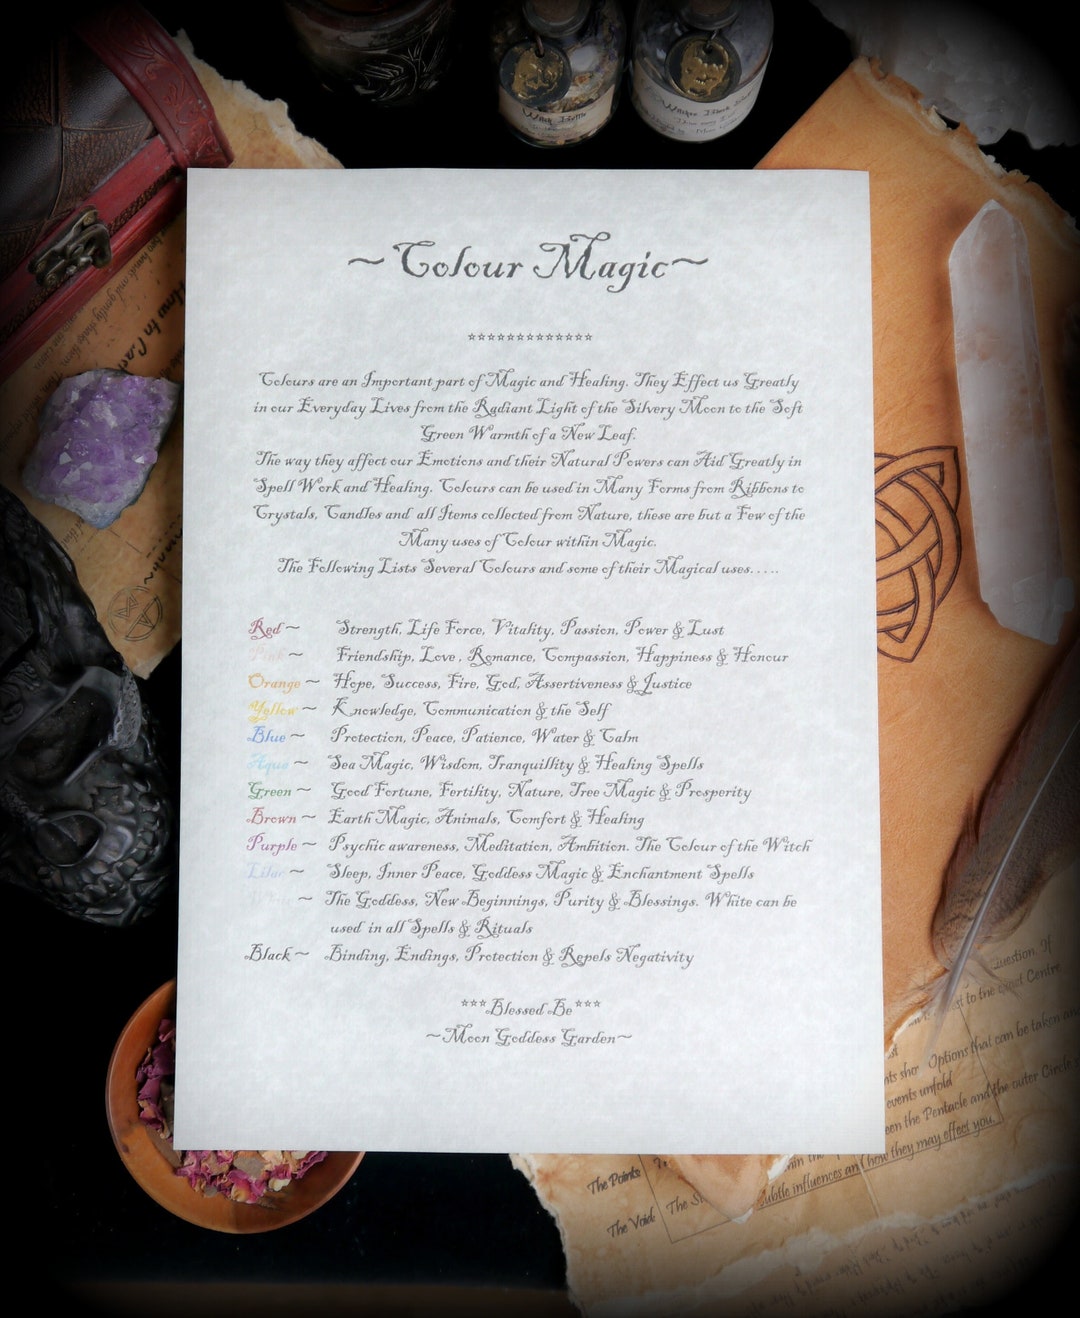 Witch Bottle
~Colour Magic~
*************
Colours are an Important part of Magic and Healing. They Effect us Greatly
in our Everyday Lives from the Radiant Light of the Silvery Moon to the Soft
Green Warmth of a New Leaf.
The way they affect our Emotions and their Natural Powers can Aid Greatly in
Spell Work and Healing. Colours can be used in Many Forms from Ribbons to
Crystals, Candles and all Items collected from Nature, these are but a Few of the
Many uses of Colour within Magic.
The Following Lists Several Colours and some of their Magical uses.....
Red ~ Strength, Life Force, Vitality, Passion, Power & Lust
Pink ~ Friendship, Love, Romance, Compassion, Happiness & Honour
Orange ~ Hope, Success, Fire, God, Assertiveness & Justice
Yellow ~ Knowledge, Communication & the Self
Blue ~ Protection, Peace, Patience, Water & Calm
Aqua ~ Sea Magic, Wisdom, Tranquillity & Healing Spells
Green ~ Good Fortune, Fertility, Nature, Tree Magic & Prosperity
Brown ~ Earth Magic, Animals, Comfort & Healing
Purple ~ Psychic awareness, Meditation, Ambition. The Colour of the Witch
Lilac ~ Sleep, Inner Peace, Goddess Magic & Enchantment Spells
White ~ The Goddess, New Beginnings, Purity & Blessings. White can be
used in all Spells & Rituals
Black ~ Binding, Endings, Protection & Repels Negativity
***Blessed Be***
~Moon Goddess Garden~
How to Cas
two hands and gently shake them
uestion. If
st to the exact Centre
Options that can be taken and
events unfold
een the Pentacle and the outer Circle s
how they may effect you.
subtle influences an
The Points:
The Void: The S